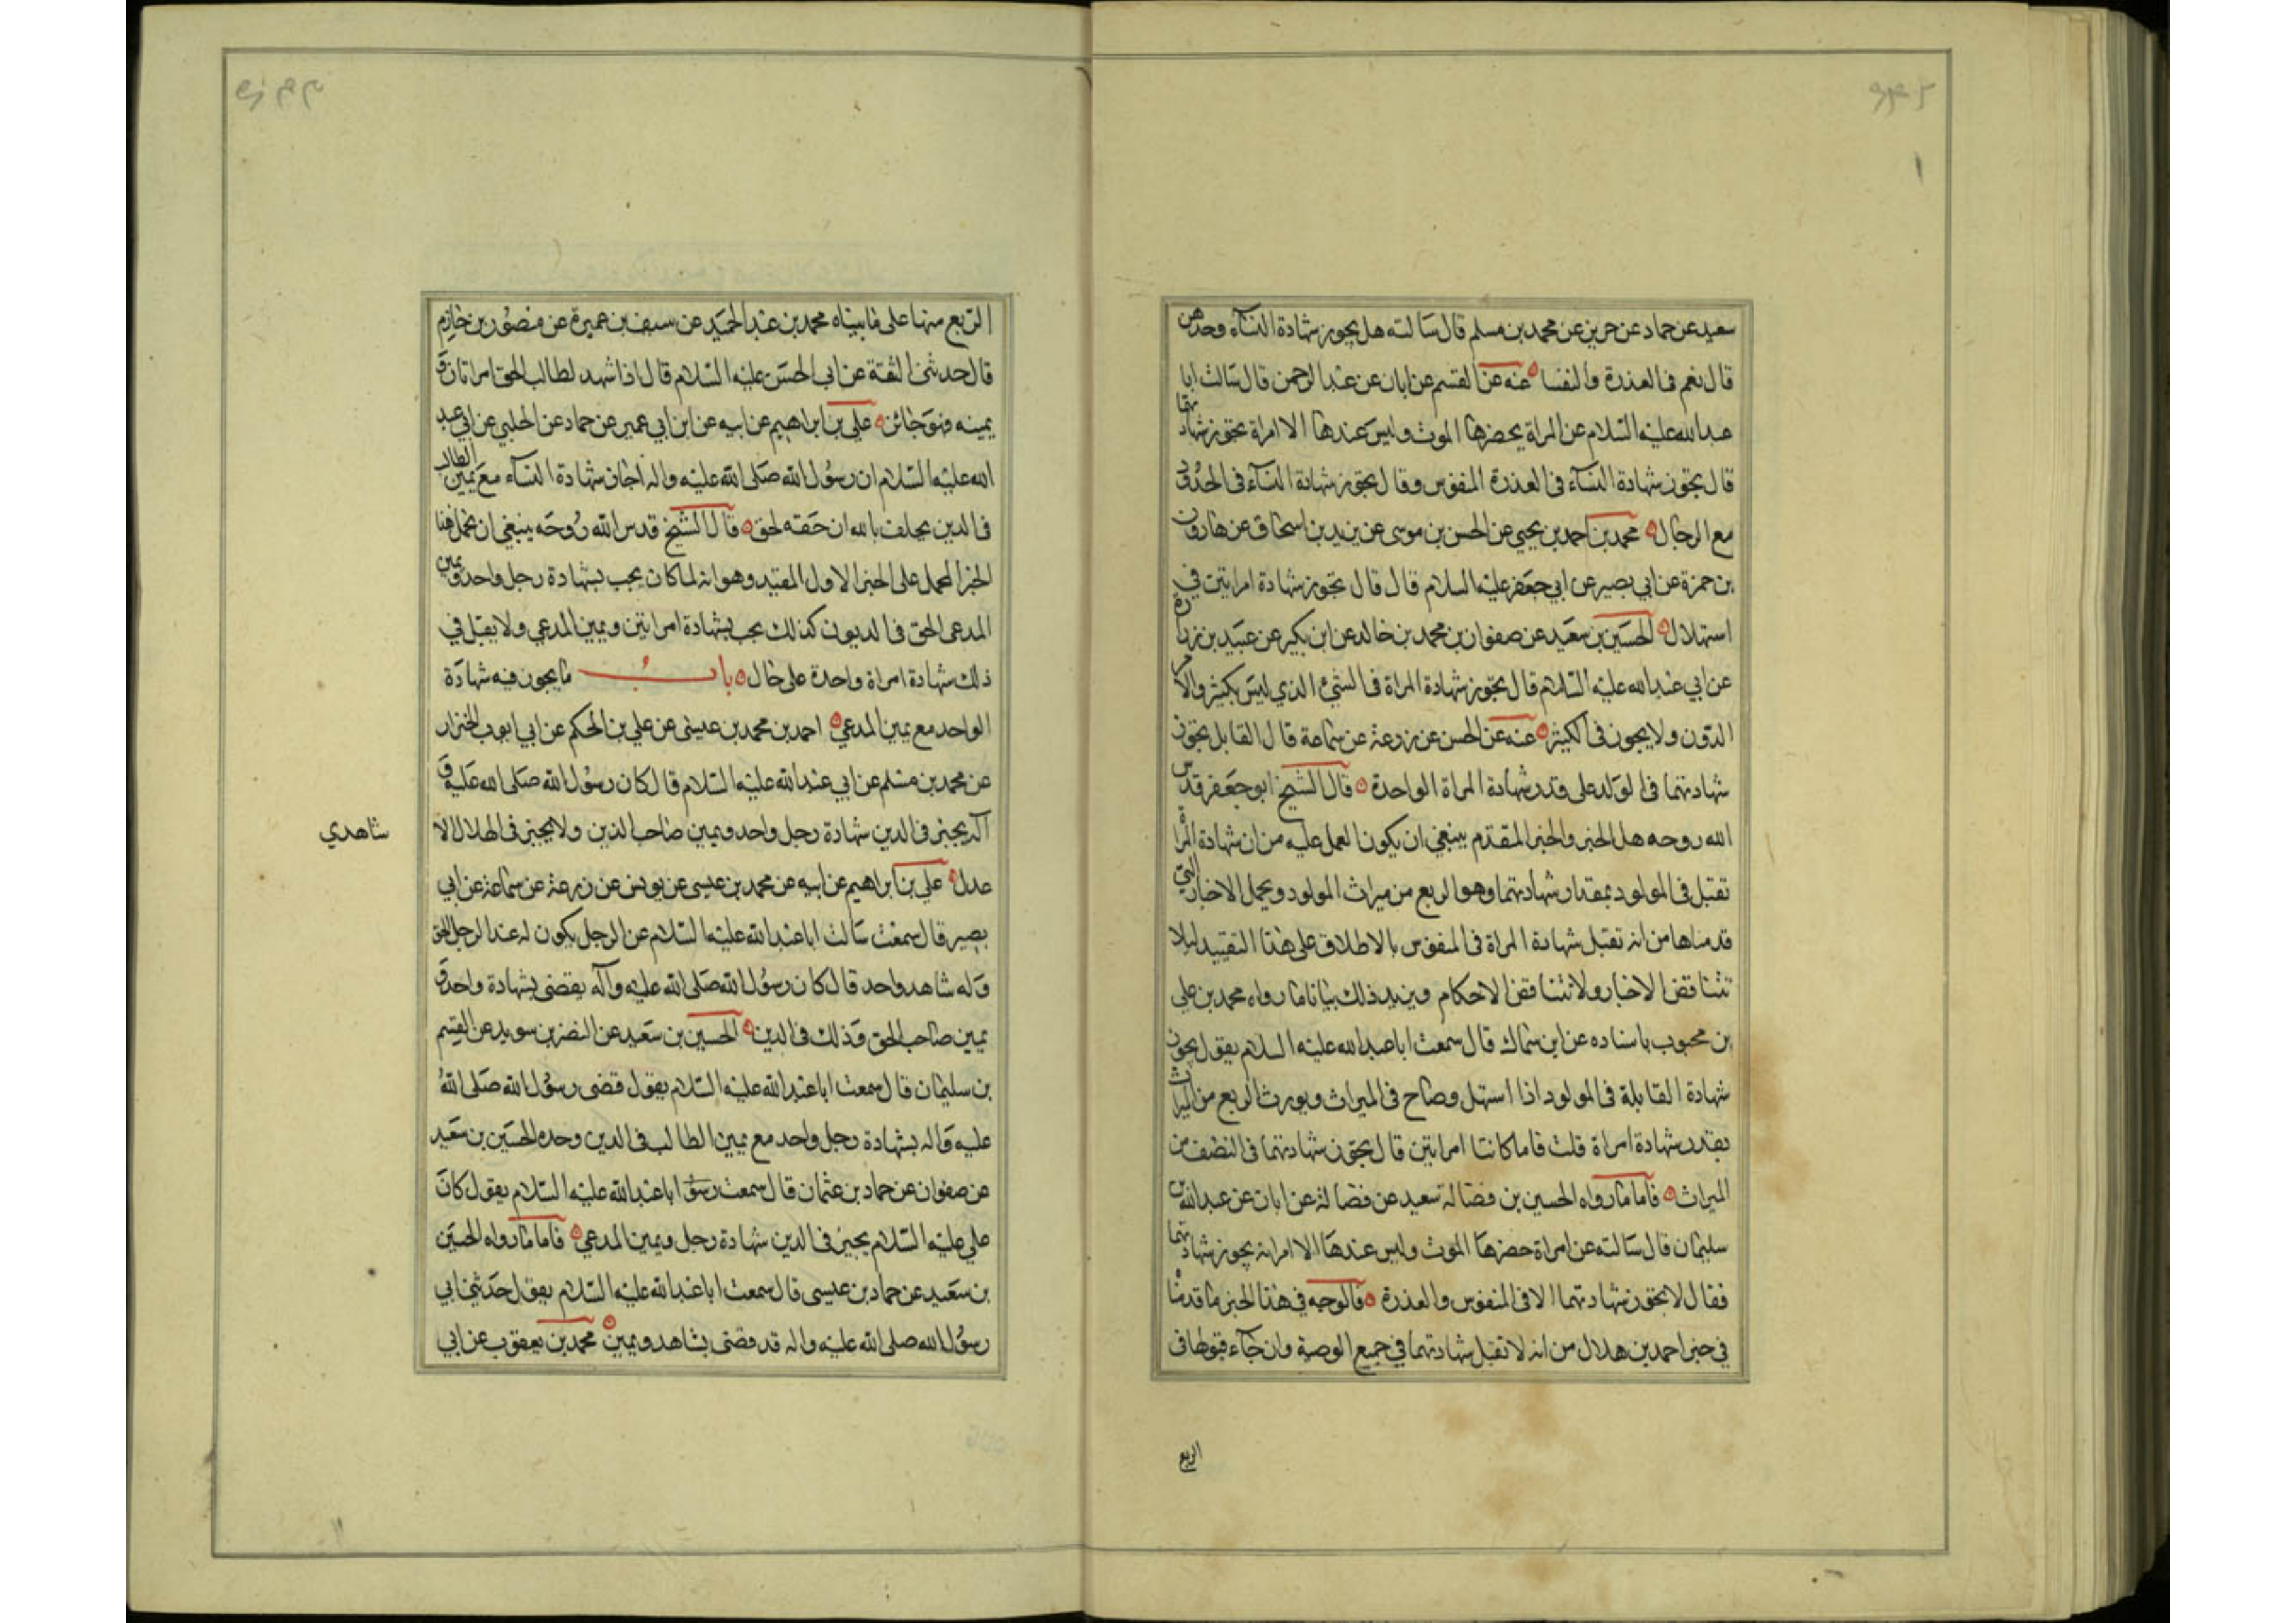 سعيد عن حماد عن حريز عن محمد بن مسلم قال سالته هل يجوز شهادة النسآء وحدهن
قال نعم فى العذرة والنفسا عنه عن القسم عن ابان عن عبد الرحمن قال سالت ابا
عبد الله عليه السلام عن المراة يحضرها الموت وليس عندها الا امراة تجوز شهادتها
قال يجوز شهادة النسآء فى العذرة المنفوس وقال يجوز شهادة النسآء فى الحدود
مع الرجال محمد بن احمد بن يحيى عن الحسن بن موسى عن يزيد بن اسحاق عن هارون
بن حمزة عن ابي بصير عن ابي جعفر عليه السلام قال قال تجوز شهادة امراتين في
استهلال الحسين بن سعيد عن صفوان بن محمد بن خالد عن ابن بكير عن عبيد بن زرارة
عن ابي عبد الله عليه السلام قال يجوز شهادة المراة فى الشيء الذي ليس بكثير والامر
الدون ولا يجوز فى الكثير عنه عن الحسن عن زرعة عن سماعة قال القابل يجوز
شهادتها فى الولد على قدر شهادة المراة الواحدة قال الشيخ ابو جعفر قدس
الله روحه هل الخبر والخبر المقدم ينبغي ان يكون العمل عليه من ان شهادة المراة
تقبل فى المولود بمقدار شهادتها وهو الربع من ميراث المولود ويحمل الاخبار التي
قدمناها من انه تقبل شهادة المراة فى المنفوس بالاطلاق على هذا التقييد ليلا
تتناقض الاخبار ولا تتناقض الاحكام ويزيد ذلك بيانا ما رواه محمد بن علي
بن محبوب باسناده عن ابن سماك قال سمعت ابا عبد الله عليه السلام يقول يجوز
شهادة القابلة فى المولود اذا استهل وصاح فى الميراث ويورث الربع من الميراث
بقدر شهادة امراة قلت فاما كانتا امراتين قال يجوز شهادتهما فى النصف من
الميراث فاما ما رواه الحسين بن فضالة سعيد عن فضالة عن ابان عن عبد الله بن
سليمان قال سالته عن امراة حضرها الموت وليس عندها الا امراة يجوز شهادتها
فقال لا يجوز شهادتها الا فى المنفوس والعذرة فالوجه في هذا الخبر ما قدمنا
في خبر احمد بن هلال من انه لا تقبل شهادتها في جميع الوصية وان جآء قبولها في
الربع
الربع منها على ما بيناه محمد بن عبد الحميد عن سيف بن عميرة عن منصور بن حازم
قال حدثنى الثقة عن ابى الحسن عليه السلام قال اذا شهد لطالب الحق امراتان و
يمينه فهو جائز علي بن ابراهيم عن ابيه عن ابن ابي عمير عن حماد عن الحلبي عن ابي عبد
الله عليه السلام ان رسول الله صلى الله عليه واله اجاز شهادة النسآء مع يمين الطالب
فى الدين يحلف بالله ان حقه لحق قال الشيخ قدس الله روحه ينبغي ان يحمل هذا
الخبر المجمل على الخبر الاول المقيد وهو انه لما كان يجب بشهادة رجل واحد ويمين
المدعى الحق فى الديون كذلك يجب بشهادة امراتين ويمين المدعي ولا يقبل في
ذلك شهادة امراة واحدة على حال باب ما يجوز فيه شهادة
الواحد مع يمين المدعي احمد بن محمد بن عيسى عن علي بن الحكم عن ابي ايوب الخزاز
عن محمد بن مسلم عن ابي عبد الله عليه السلام قال كان رسول الله صلى الله عليه و
آله يجيز فى الدين شهادة رجل واحد ويمين صاحب الدين ولا يجيز فى الهلال الا
شاهدي
عدل علي بن ابراهيم عن ابيه عن محمد بن عيسى عن يونس عن زرعة عن سماعة عن ابي
بصير قال سمعت سالت ابا عبد الله عليه السلام عن الرجل يكون له عند الرجل الحق
وله شاهد واحد قال كان رسول الله صلى الله عليه وآله يقضى بشهادة واحد و
يمين صاحب الحق وذلك فى الدين الحسين بن سعيد عن النضر بن سويد عن القسم
بن سليمان قال سمعت ابا عبد الله عليه السلام يقول قضى رسول الله صلى الله
عليه واله بشهادة رجل واحد مع يمين الطالب فى الدين وحده الحسين بن سعيد
عن صفوان عن حماد بن عثمان قال سمعت ابا عبد الله عليه السلام يقول كان
علي عليه السلام يجيز فى الدين شهادة رجل ويمين المدعي فاما ما رواه الحسين
بن سعيد عن حماد بن عيسى قال سمعت ابا عبد الله عليه السلام يقول حدثني ابي
رسول الله صلى الله عليه واله قد قضى بشاهد ويمين محمد بن يعقوب عن ابي